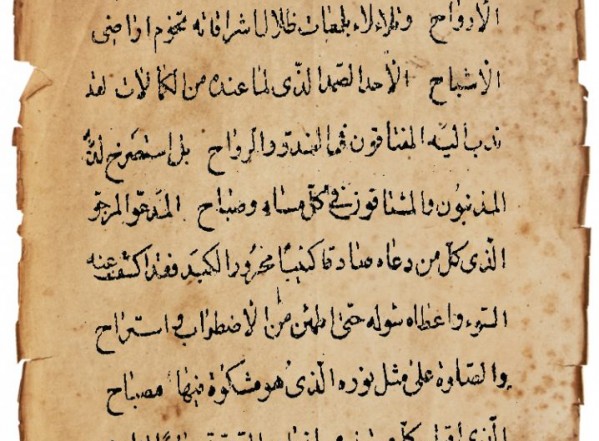 الارواح وتلالاء بلمعات ظلال اشراقاته تخوم اراضى
الاشباح الاحد الصمد الذى لما عنده من الكمالات لقد
ندب اليه المفتاقون فى الغدو والرواح بل استصرخ لديه
المذنبون والمشتاقون فى كل مساء وصباح المدعو المرجو
الذى كل من دعاه صادقا كئيبا محرور الكبد فقد اكشف عنه
السوء واعطاه سوله حتى اطمئن من الاضطراب واستراح
والصلوة على مثل نوره الذى هو مشكوة فيها مصباح
الذى